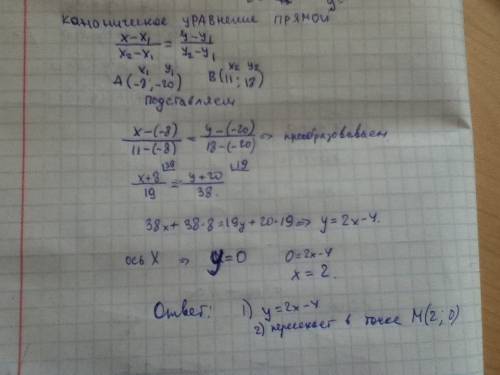 каноническое уравнение прямой
x-x₁/x₂-x₁ = y-y₁/y₂-y₁
x₁ y₁ x₂ y₂
A(-8; -20) B(11; 18)
подставляем
x-(-8)/11-(-8) = y-(-20)/18-(-20) => преобразовываем
x+8/19 |38 = y+20/38 |19
38x+38·8=19y+20·19 => y=2x-4.
ось X => y=0 0=2x-4
x=2.
Ответ: 1) y=2x-4
2) пересекает в точке M(2; 0)